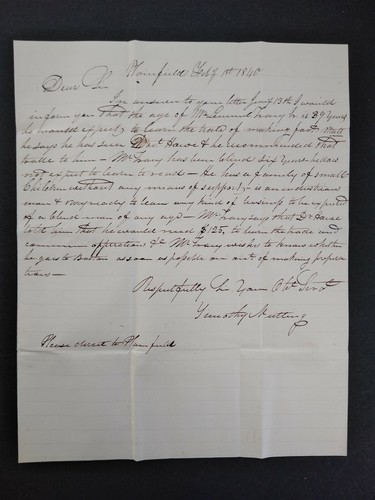 Plainfield Feby 1st 1840
Dear Sir
In answer to your letter Jany 13th I would
inform you that the age of Mr Lemuel Trary Jr is 29 years
he would expect to learn the trade of making fast Matts
he says he has seen Doct Howe & he recommended that
trade to him – Mr Trary has been blind six years he does
not expect to learn to read – He has a family of small
Children without any means of support, & is an industrious
man & very ready to learn any kind of business to be expected
of a blind man of any age – Mr Trary says that Dr Howe
told him that he would need $125, to learn the trade and
commence opperations &c Mr Trary wishes to know whether
he go to Boston as soon as possible on act of making prepera
tions –
Respectfully Sir Your Obt Servt
Timothy Nutting
Please direct to Plainfield